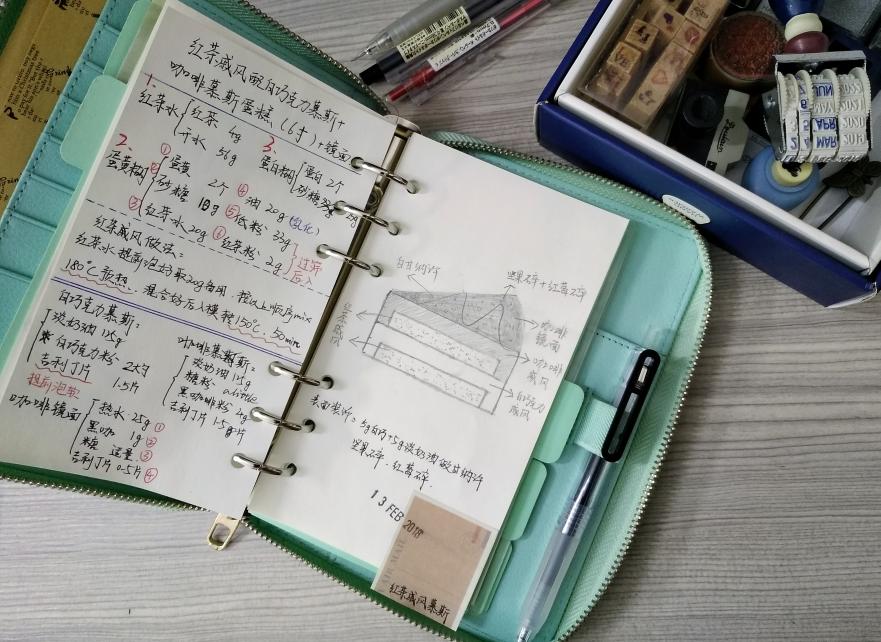 红茶戚风配白巧克力慕斯+
咖啡慕斯蛋糕(6寸)+镜面
1.
红茶水 红茶 4g
开水 56g
2.
蛋黄糊
① 蛋黄 2个
② 砂糖 18g
③ 红茶水 20g
④ 油 20g (乳化)
⑤ 低粉 33g
⑥ 红茶粉 2g
过筛后入
3.
蛋白糊 蛋白 2个
砂糖
红茶戚风做法:
红茶水提前泡好取20g备用,按以上顺序mix
180℃预热,混合好后入模转150℃,50min
白巧克力慕斯:
淡奶油 125g
白巧克力粉 2大勺
吉利丁片 1.5片
提前泡软
咖啡慕斯:
淡奶油 125g
糖粉 a little
黑咖啡粉 4g
吉利丁片 1.5片
咖啡镜面
热水 25g ①
黑咖 1g ②
糖 适量 ③
吉利丁片 0.5片 ④
白甘纳许
坚果碎+红莓碎
咖啡镜面
咖啡戚风
白巧克力戚风
表面装饰:5g白巧+5g淡奶油做甘纳许
坚果碎,红莓碎.
13 FEB 2018
红茶戚风慕斯